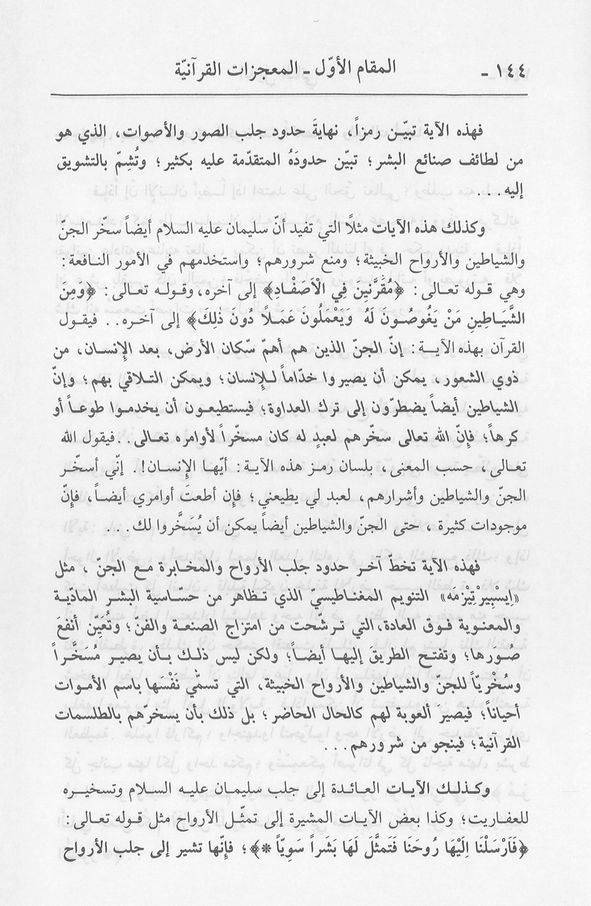 ١٤٤ - المقام الأوّل - المعجزات القرآنيّة
فهذه الآية تبيّـن رمزاً، نهايةَ حدود جلب الصور والأصوات، الذي هو
من لطائف صنائع البشر؛ تبيّن حدودَهُ المتقدّمة عليه بكثير؛ وتُشِمّ بالتشويق
إليه...
وكذلك هذه الآيات مثلًا التي تفيد أنّ سليمان عليه السلام أيضاً سخّر الجنّ
والشياطين والأرواح الخبيثة؛ ومنع شرورهم؛ واستخدمهم في الأمور النافعة:
وهي قوله تعالى: ﴿مُقَرَّنينَ فِي الْأَصْفَادِ﴾ إلى آخره، وقوله تعالى: ﴿وَمِنَ
الشَّيَاطِينِ مَنْ يَغُوصُونَ لَهُ وَيَعْمَلُونَ عَمَلًا دُونَ ذٰلِكَ﴾ إلى آخره.. فيقول
القرآن بهذه الآية: إنّ الجنّ الذين هم أهمّ سكّان الأرض، بعد الإنسان، من
ذوي الشعور، يمكن أن يصيروا خدّاماً للإنسان؛ ويمكن التلاقي بهم؛ وإنّ
الشياطين أيضاً يضطرّون إلى ترك العداوة؛ فيستطيعون أن يخدموا طوعاً أو
كرهاً؛ فإنّ الله تعالى سخّرهم لعبدٍ له كان مسخّراً لأوامره تعالى.. فيقول الله
تعالى، حسب المعنى، بلسان رمز هذه الآية: أيّها الإنسان!. إنّي أسخّر
الجنّ والشياطين وأشرارهم، لعبد لي يطيعني؛ فإن أطعتَ أوامري أيضاً، فإنّ
موجودات كثيرة ، حتى الجنّ والشياطين أيضاً يمكن أن يُسَخَّروا لك...
فهذه الآية تخطّ آخر حدود جلب الأرواح والمخابرة مع الجنّ ، مثل
«اِيسْبِيرْتِيزْمَه» التنويم المغناطيسيّ الذي تظاهر من حسّاسية البشر المادّية
والمعنوية فوق العادة، التي ترشّحت من امتزاج الصنعة والفنّ؛ وتُعَيِّن أنفعَ
صُورَها؛ وتفتح الطريق إليها أيضاً؛ ولكن ليس ذلك بأن يصير مُسَخَّراً
وسُخْرِيّاً للجنّ والشياطين والأرواح الخبيثة، التي تسمّي نَفْسَها باسم الأموات
أحياناً؛ فيصير ألعوبة لهم كالحال الحاضر؛ بل ذلك بأن يسخّرهم بالطلسمات
القرآنية؛ فينجو من شرورهم...
وكذلك الآيات العائدة إلى جلب سليمان عليه السلام وتسخيره
للعفاريت؛ وكذا بعض الآيات المشيرة إلى تمثّل الأرواح مثل قوله تعالى:
﴿فَاَرْسَلْنَا اِلَيْهَا رُوحَنَا فَتَمثَّلَ لَهَا بَشَراً سَوِيّاً *﴾؛ فإنّها تشير إلى جلب الأرواح